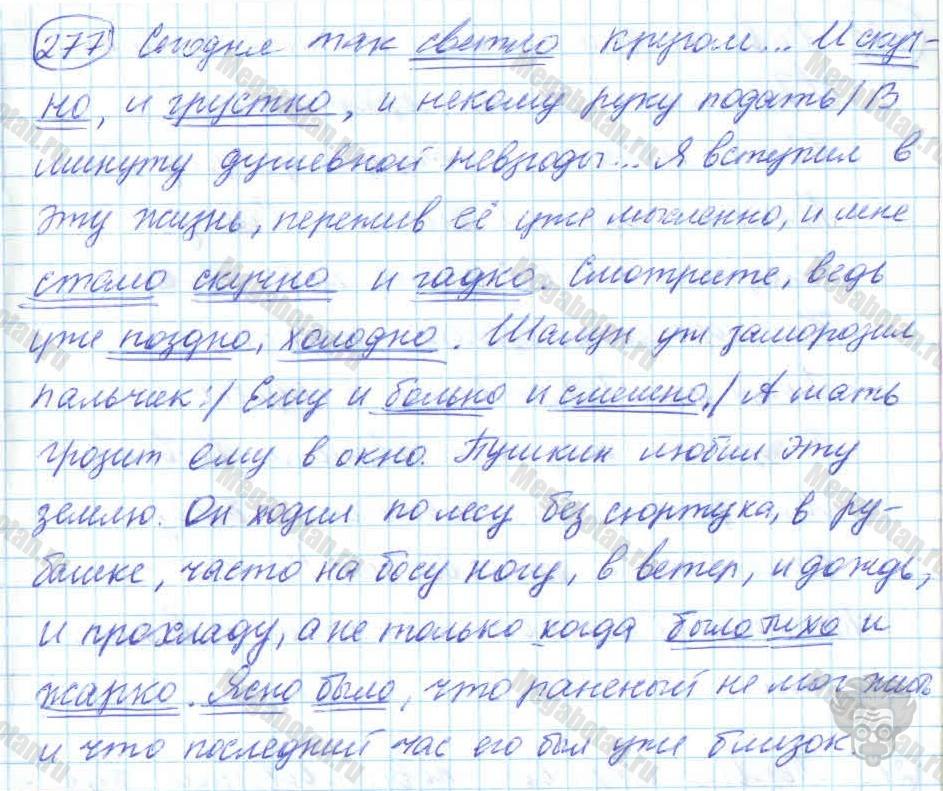 277 Сегодня так светло кругом... И скуч-
но, и грустно, и некому руку подать / В
минуту душевной невзгоды... Я вступил в
эту жизнь, пережив её уже мысленно, и мне
стало скучно и гадко. Смотрите, ведь
уже поздно, холодно. Шалун уж заморозил
пальчик: / Ему и больно и смешно, / А мать
грозит ему в окно. Пушкин любил эту
землю. Он ходил по лесу без сюртука, в ру-
башке, часто на босу ногу, в ветер, и дождь,
и прохладу, а не только когда было тихо и
жарко. Ясно было, что раненый не мог жить
и что последний час его был уже близок